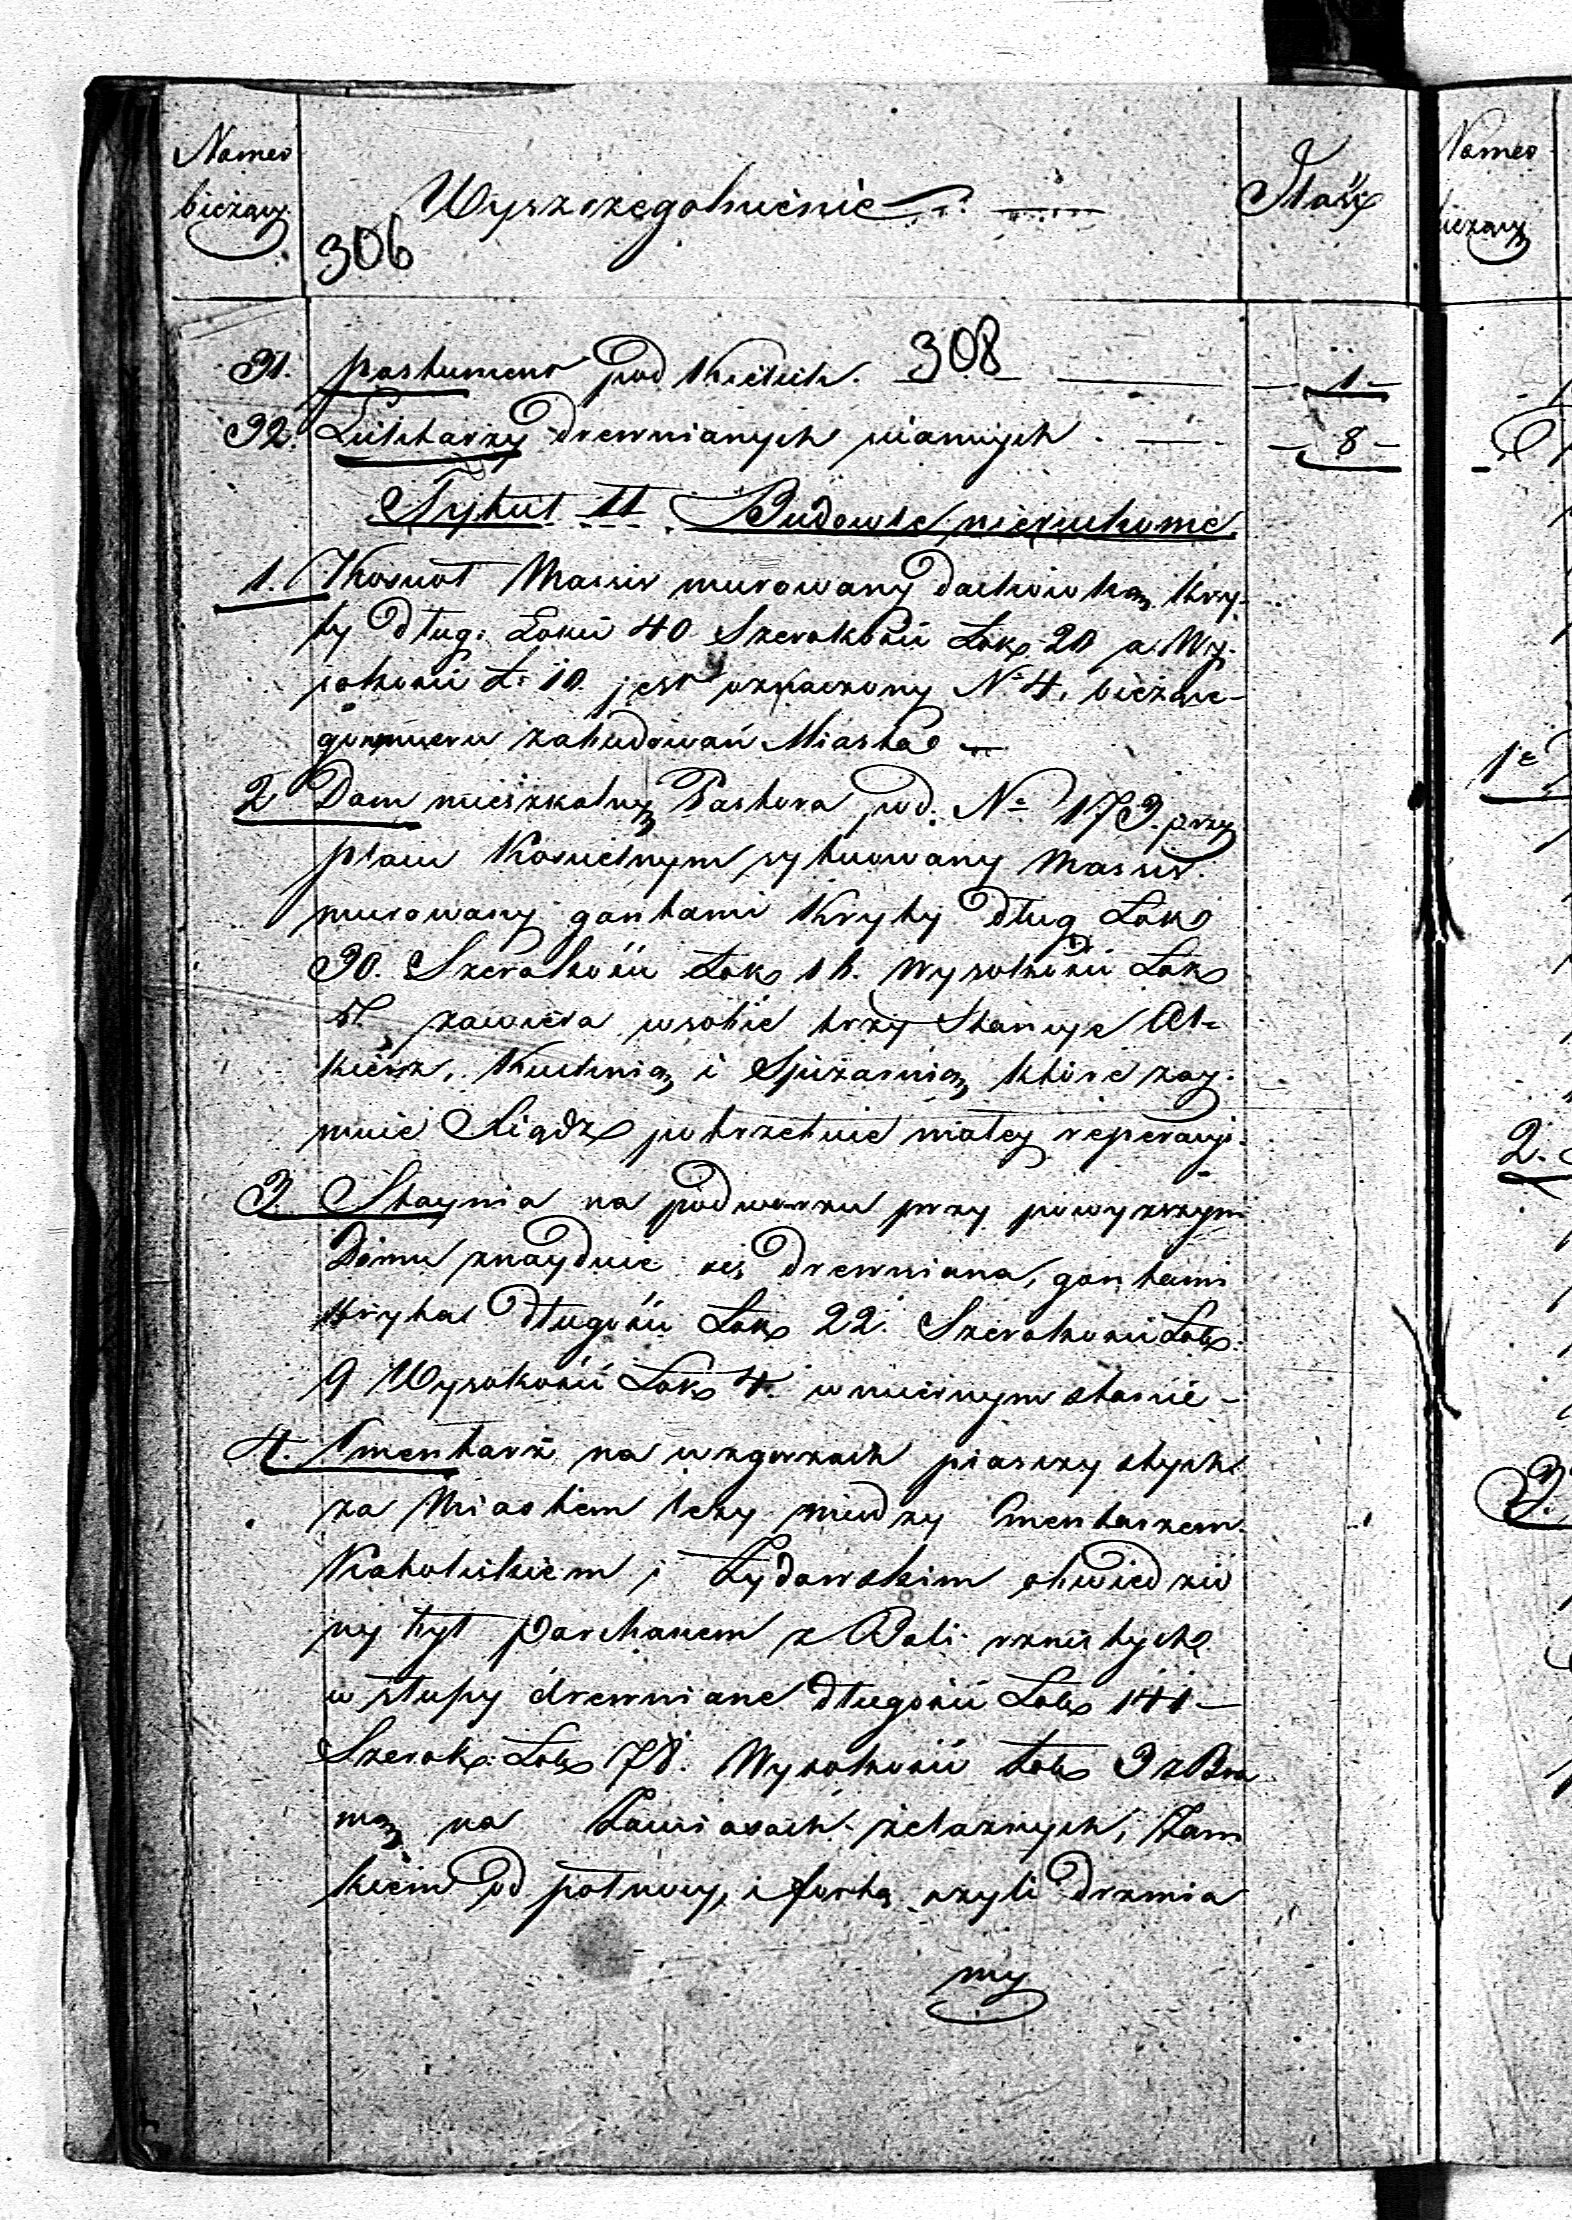 Numer
bieżący
Wyszczegolnienie
Ilość
306
308
31. postument pod Kielich. 1
32. Lichtarzy drewnianych 8
Tytuł II Budowle nieruchome
1. Kosciot Massiv murowany dachowką kry-
ty Dług: Łokci 40 Szerokości Łok 20 a Wy-
sokości Ł: 10. jest oznaczony N 4, bieżące-
go numeru zabudowań Miasta
2 Dom mieszkalny Pastora pod No 173. przy
placu Koscielnym sytuowany Massiv
murowany gontami Kryty Dług Łok
30. Szerokości Łok 16. Wysokości Łok
5. zawiera w sobie trzy Stancye Al-
kierz, Kuchnią i Spiżarnią, które zay-
muie Xiądz potrzebuie małey reperacyi.
3. Staynia na podworzu przy powyższym
Domu znayduie się Drewniana, gontami
Kryta Długości Łok 22. Szerokości Łok.
9 Wysokości Łok 4. w miernym stanie -
4. Smentarz na wzgorzach piasczystych
za Miastem leży między Smentarzem
Katolickiem i Żydowskim obwiedzio
ny był Parkanem z Bali rzniętych
w słupy drewniane Długości Łok 141 -
Szerok. Łok 78. Wysokości Łok 3 z Bra
mą na Zawiasach żelaznych, Zam
kiem od połnocy, i fortą czyli Drzwia
my
Numer
bieżący
1
2.
3.